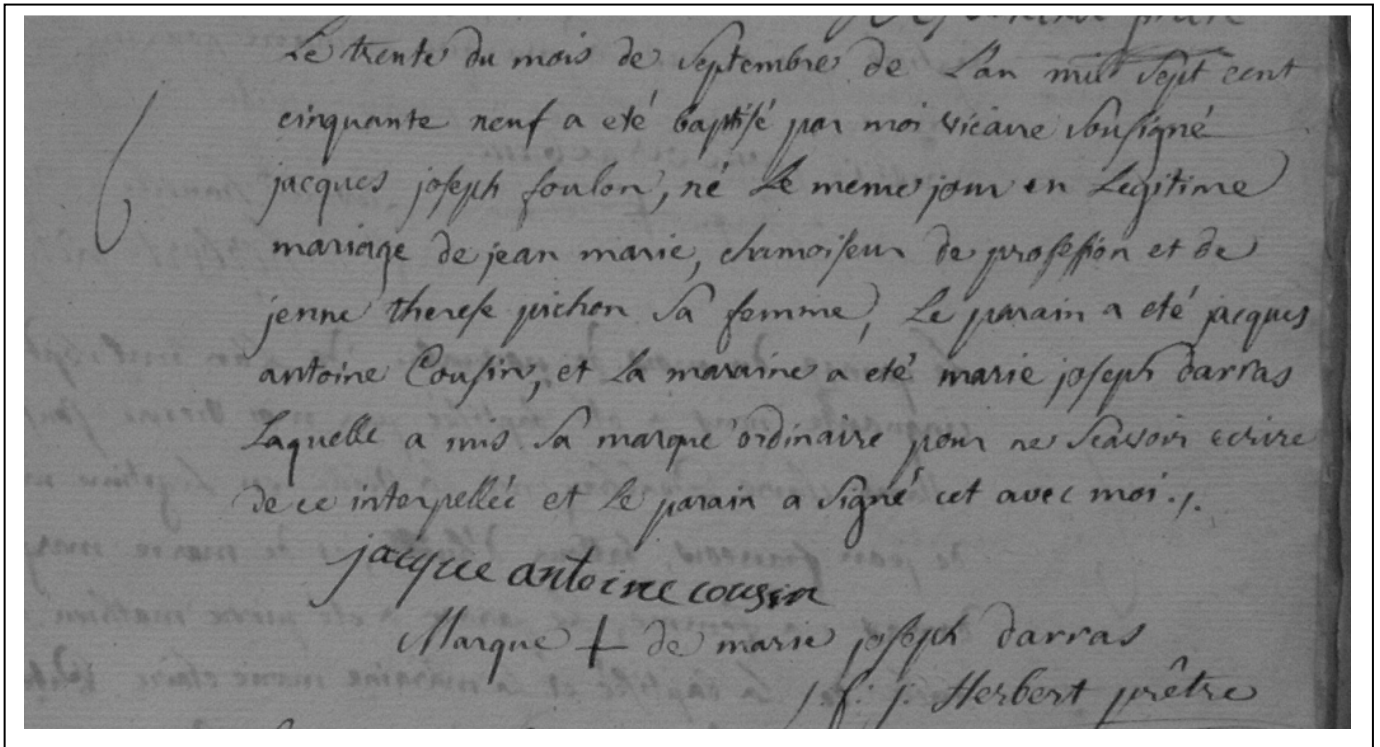 Le trente du mois de Septembre de L'an mil Sept cent
cinquante neuf a eté baptisé par moi vicaire Sousigné
jacques joseph foulon, né Le meme jour en Legitime
mariage de jean marie, chamoiseur de profession et de
jenne therese pichon Sa femme, Le parain a eté jacques
antoine Cousin, et La maraine a eté marie joseph darras
Laquelle a mis Sa marque ordinaire pour ne Scavoir ecrire
de ce interpellée et Le parain a Signé cet avec moi ./.
jacque antoine cousin
Marque + de marie joseph darras
j. f: j. Herbert prêtre